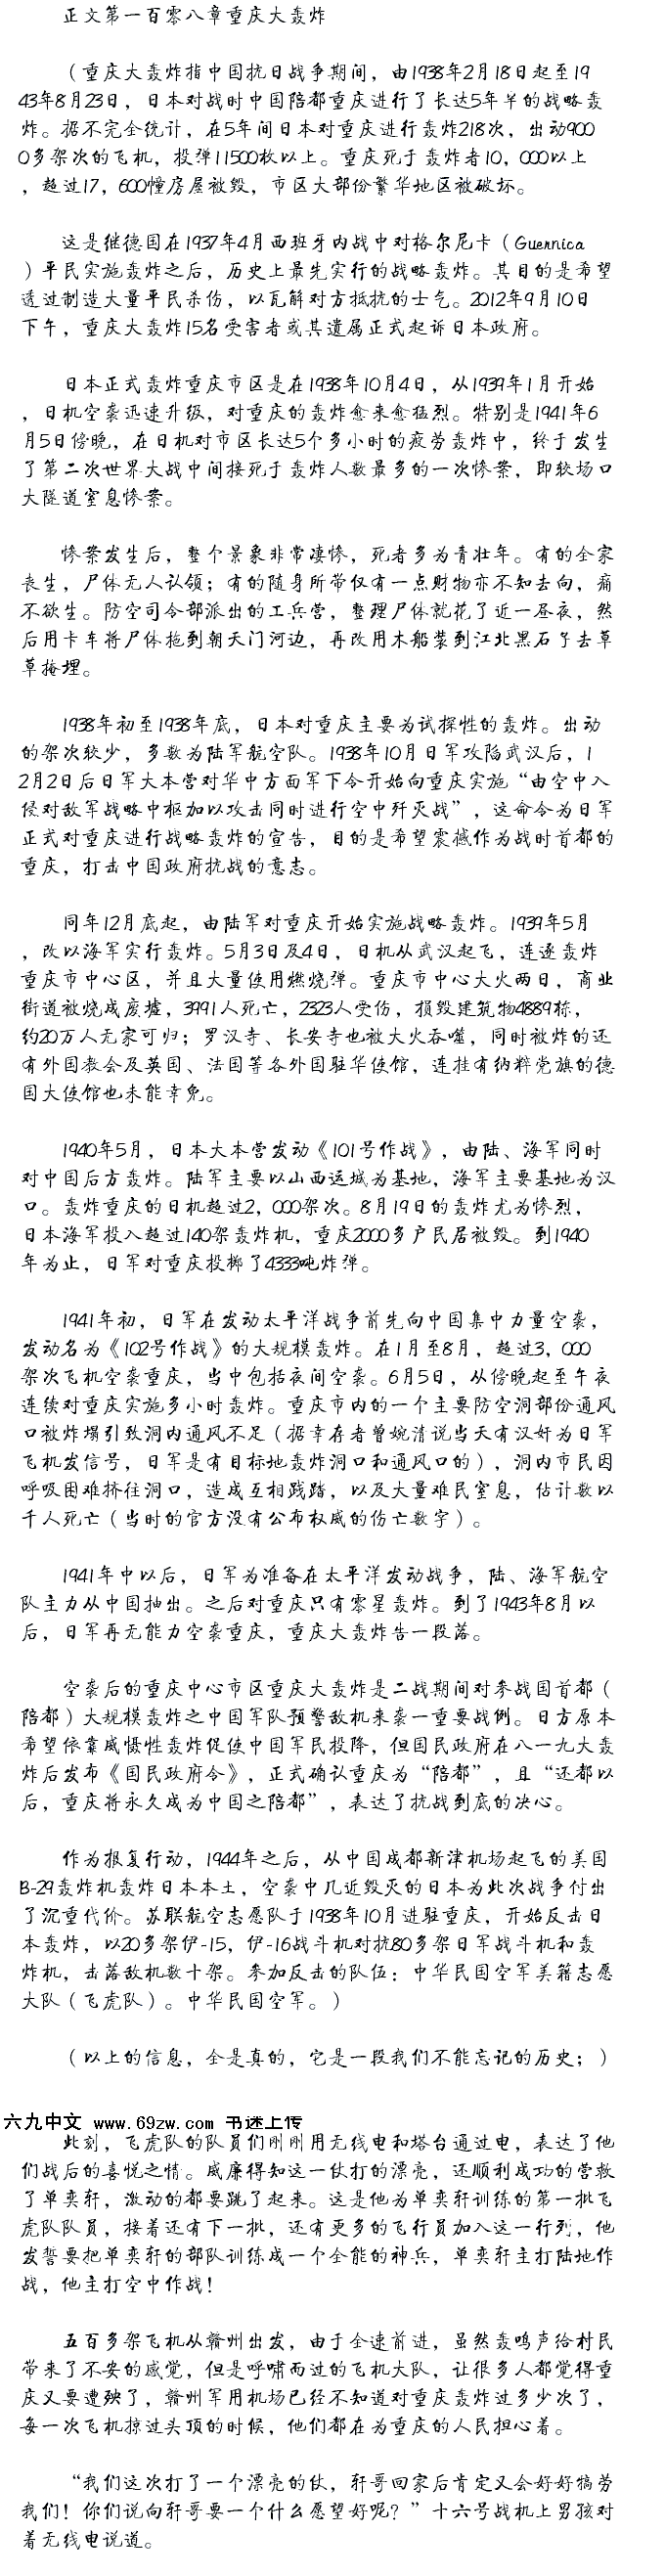 正文第一百零八章重庆大轰炸
（重庆大轰炸指中国抗日战争期间，由1938年2月18日起至19
43年8月23日，日本对战时中国陪都重庆进行了长达5年半的战略轰
炸。据不完全统计，在5年间日本对重庆进行轰炸218次，出动900
0多架次的飞机，投弹11500枚以上。重庆死于轰炸者10，000以上
，超过17，600幢房屋被毁，市区大部份繁华地区被破坏。
这是继德国在1937年4月西班牙内战中对格尔尼卡（Guernica
）平民实施轰炸之后，历史上最先实行的战略轰炸。其目的是希望
透过制造大量平民杀伤，以瓦解对方抵抗的士气。2012年9月10日
下午，重庆大轰炸15名受害者或其遗属正式起诉日本政府。
日本正式轰炸重庆市区是在1938年10月4日，从1939年1月开始
，日机空袭迅速升级，对重庆的轰炸愈来愈猛烈。特别是1941年6
月5日傍晚，在日机对市区长达5个多小时的疲劳轰炸中，终于发生
了第二次世界大战中间接死于轰炸人数最多的一次惨案，即较场口
大隧道窒息惨案。
惨案发生后，整个景象非常凄惨，死者多为青壮年。有的全家
丧生，尸体无人认领；有的随身所带仅有一点财物亦不知去向，痛
不欲生。防空司令部派出的工兵营，整理尸体就花了近一昼夜，然
后用卡车将尸体拖到朝天门河边，再改用木船装到江北黑石子去草
草掩埋。
1938年初至1938年底，日本对重庆主要为试探性的轰炸。出动
的架次较少，多数为陆军航空队。1938年10月日军攻陷武汉后，1
2月2日后日军大本营对华中方面军下令开始向重庆实施“由空中入
侵对敌军战略中枢加以攻击同时进行空中歼灭战”，这命令为日军
正式对重庆进行战略轰炸的宣告，目的是希望震撼作为战时首都的
重庆，打击中国政府抗战的意志。
同年12月底起，由陆军对重庆开始实施战略轰炸。1939年5月
，改以海军实行轰炸。5月3日及4日，日机从武汉起飞，连逐轰炸
重庆市中心区，并且大量使用燃烧弹。重庆市中心大火两日，商业
街道被烧成废墟，3991人死亡，2323人受伤，损毁建筑物4889栋，
约20万人无家可归；罗汉寺、长安寺也被大火吞噬，同时被炸的还
有外国教会及英国、法国等各外国驻华使馆，连挂有纳粹党旗的德
国大使馆也未能幸免。
1940年5月，日本大本营发动《101号作战》，由陆、海军同时
对中国后方轰炸。陆军主要以山西运城为基地，海军主要基地为汉
口。轰炸重庆的日机超过2，000架次。8月19日的轰炸尤为惨烈，
日本海军投入超过140架轰炸机，重庆2000多户民居被毁。到1940
年为止，日军对重庆投掷了4333吨炸弹。
1941年初，日军在发动太平洋战争前先向中国集中力量空袭，
发动名为《102号作战》的大规模轰炸。在1月至8月，超过3，000
架次飞机空袭重庆，当中包括夜间空袭。6月5日，从傍晚起至午夜
连续对重庆实施多小时轰炸。重庆市内的一个主要防空洞部份通风
口被炸塌引致洞内通风不足（据幸存者曾婉清说当天有汉奸为日军
飞机发信号，日军是有目标地轰炸洞口和通风口的），洞内市民因
呼吸困难挤往洞口，造成互相践踏，以及大量难民窒息，估计数以
千人死亡（当时的官方没有公布权威的伤亡数字）。
1941年中以后，日军为准备在太平洋发动战争，陆、海军航空
队主力从中国抽出。之后对重庆只有零星轰炸。到了1943年8月以
后，日军再无能力空袭重庆，重庆大轰炸告一段落。
空袭后的重庆中心市区重庆大轰炸是二战期间对参战国首都（
陪都）大规模轰炸之中国军队预警敌机来袭一重要战例。日方原本
希望依靠威慑性轰炸促使中国军民投降，但国民政府在八一九大轰
炸后发布《国民政府令》，正式确认重庆为“陪都”，且“还都以
后，重庆将永久成为中国之陪都”，表达了抗战到底的决心。
作为报复行动，1944年之后，从中国成都新津机场起飞的美国
B-29轰炸机轰炸日本本土，空袭中几近毁灭的日本为此次战争付出
了沉重代价。苏联航空志愿队于1938年10月进驻重庆，开始反击日
本轰炸，以20多架伊-15，伊-16战斗机对抗80多架日军战斗机和轰
炸机，击落敌机数十架。参加反击的队伍：中华民国空军美籍志愿
大队（飞虎队）。中华民国空军。）
（以上的信息，全是真的，它是一段我们不能忘记的历史；）
六九中文 www.69zw.com 书迷上传
此刻，飞虎队的队员们刚刚用无线电和塔台通过电，表达了他
们战后的喜悦之情。威廉得知这一仗打的漂亮，还顺利成功的营救
了单奕轩，激动的都要跳了起来。这是他为单奕轩训练的第一批飞
虎队队员，接着还有下一批，还有更多的飞行员加入这一行列，他
发誓要把单奕轩的部队训练成一个全能的神兵，单奕轩主打陆地作
战，他主打空中作战！
五百多架飞机从赣州出发，由于全速前进，虽然轰鸣声给村民
带来了不安的感觉，但是呼啸而过的飞机大队，让很多人都觉得重
庆又要遭殃了，赣州军用机场已经不知道对重庆轰炸过多少次了，
每一次飞机掠过头顶的时候，他们都在为重庆的人民担心着。
“我们这次打了一个漂亮的仗，轩哥回家后肯定又会好好犒劳
我们！你们说向轩哥要一个什么愿望好呢？”十六号战机上男孩对
着无线电说道。